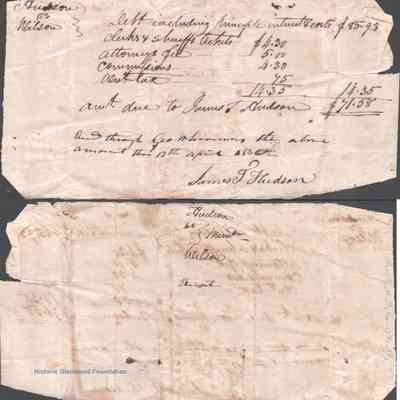 Hudson
vs
Wilson
Debt excluding Principle intrest & costs $ 85.93
Clerks & Sheriffs tickets $4.30
attorneys fee 5.00
commissions 4.30
75
14.35 14.35
amt. due to James T Hudson $71.58
the above
amount this 13th april
James T. Hudson
Hudson
vs
Wilson
Historic Glenwood Foundation